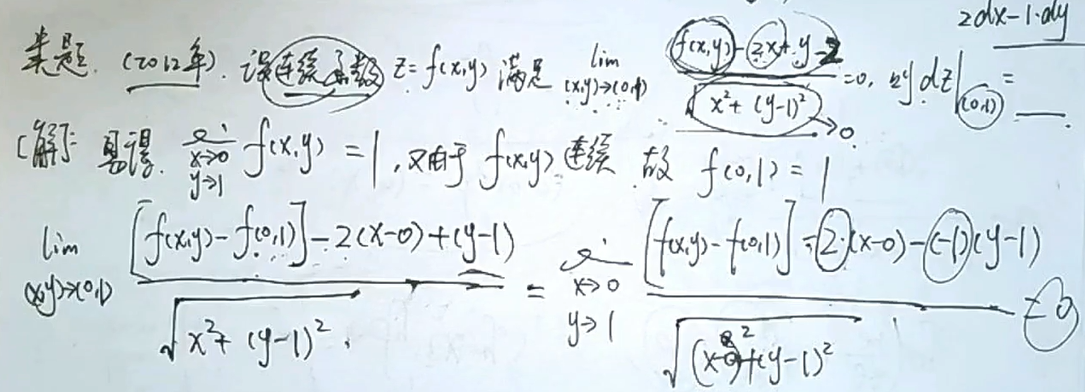 2dx-1·dy
类题. (2012年). 设连续函数 z=f(x,y) 满足 lim (x,y)→(0,1) f(x,y)-2x+y-2 / √x²+(y-1)² =0, 则dz|(0,1) = ___
→0
[解]: 易得. lim x→0 y→1 f(x,y) = 1, 又由于 f(x,y) 连续 故 f(0,1) = 1
lim (x,y)→(0,1) [f(x,y)-f(0,1)]-2(x-0)+(y-1) / √x²+(y-1)² = lim x→0 y→1 [f(x,y)-f(0,1)]-2·(x-0)-(-1)(y-1) / √(x-0)²+(y-1)² =0